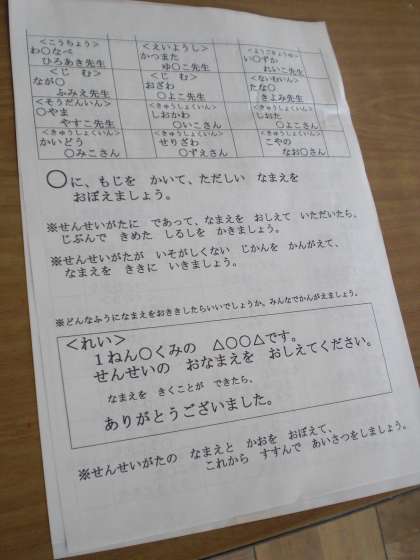 <こうちょう> <えいようし> <ようごきょうゆ>
わ〇なべ かつまた い〇ずか
ひろあき先生 ゆ〇こ先生 れいこ先生
<じ む> <じ む> <ないむいん>
なが〇 おざわ たな〇
ふみえ先生 〇よこ先生 きよみ先生
<そうだんいん> <きゅうしょくいん> <きゅうしょくいん>
〇やま しおかわ しおた
やすこ先生 〇いこさん 〇よこさん
<きゅうしょくいん> <きゅうしょくいん> <きゅうしょくいん>
かいどう せりざわ こやの
〇みこさん 〇ずえさん なお〇さん
〇に、もじを かいて、ただしい なまえを
おぼえましょう。
※せんせいがたに であって、なまえを おしえて いただいたら、
じぶんで きめた しるしを かきましょう。
※せんせいがたが いそがしくない じかんを かんがえて、
なまえを ききに いきましょう。
※どんなふうになまえをおききしたらいいでしょうか。みんなでかんがえましょう。
<れい>
1ねん〇くみの △〇〇△です。
せんせいの おなまえを おしえてください。
なまえを きくことが できたら、
ありがとうございました。
※せんせいがたの なまえと かおを おぼえて、
これから すすんで あいさつをしましょう。